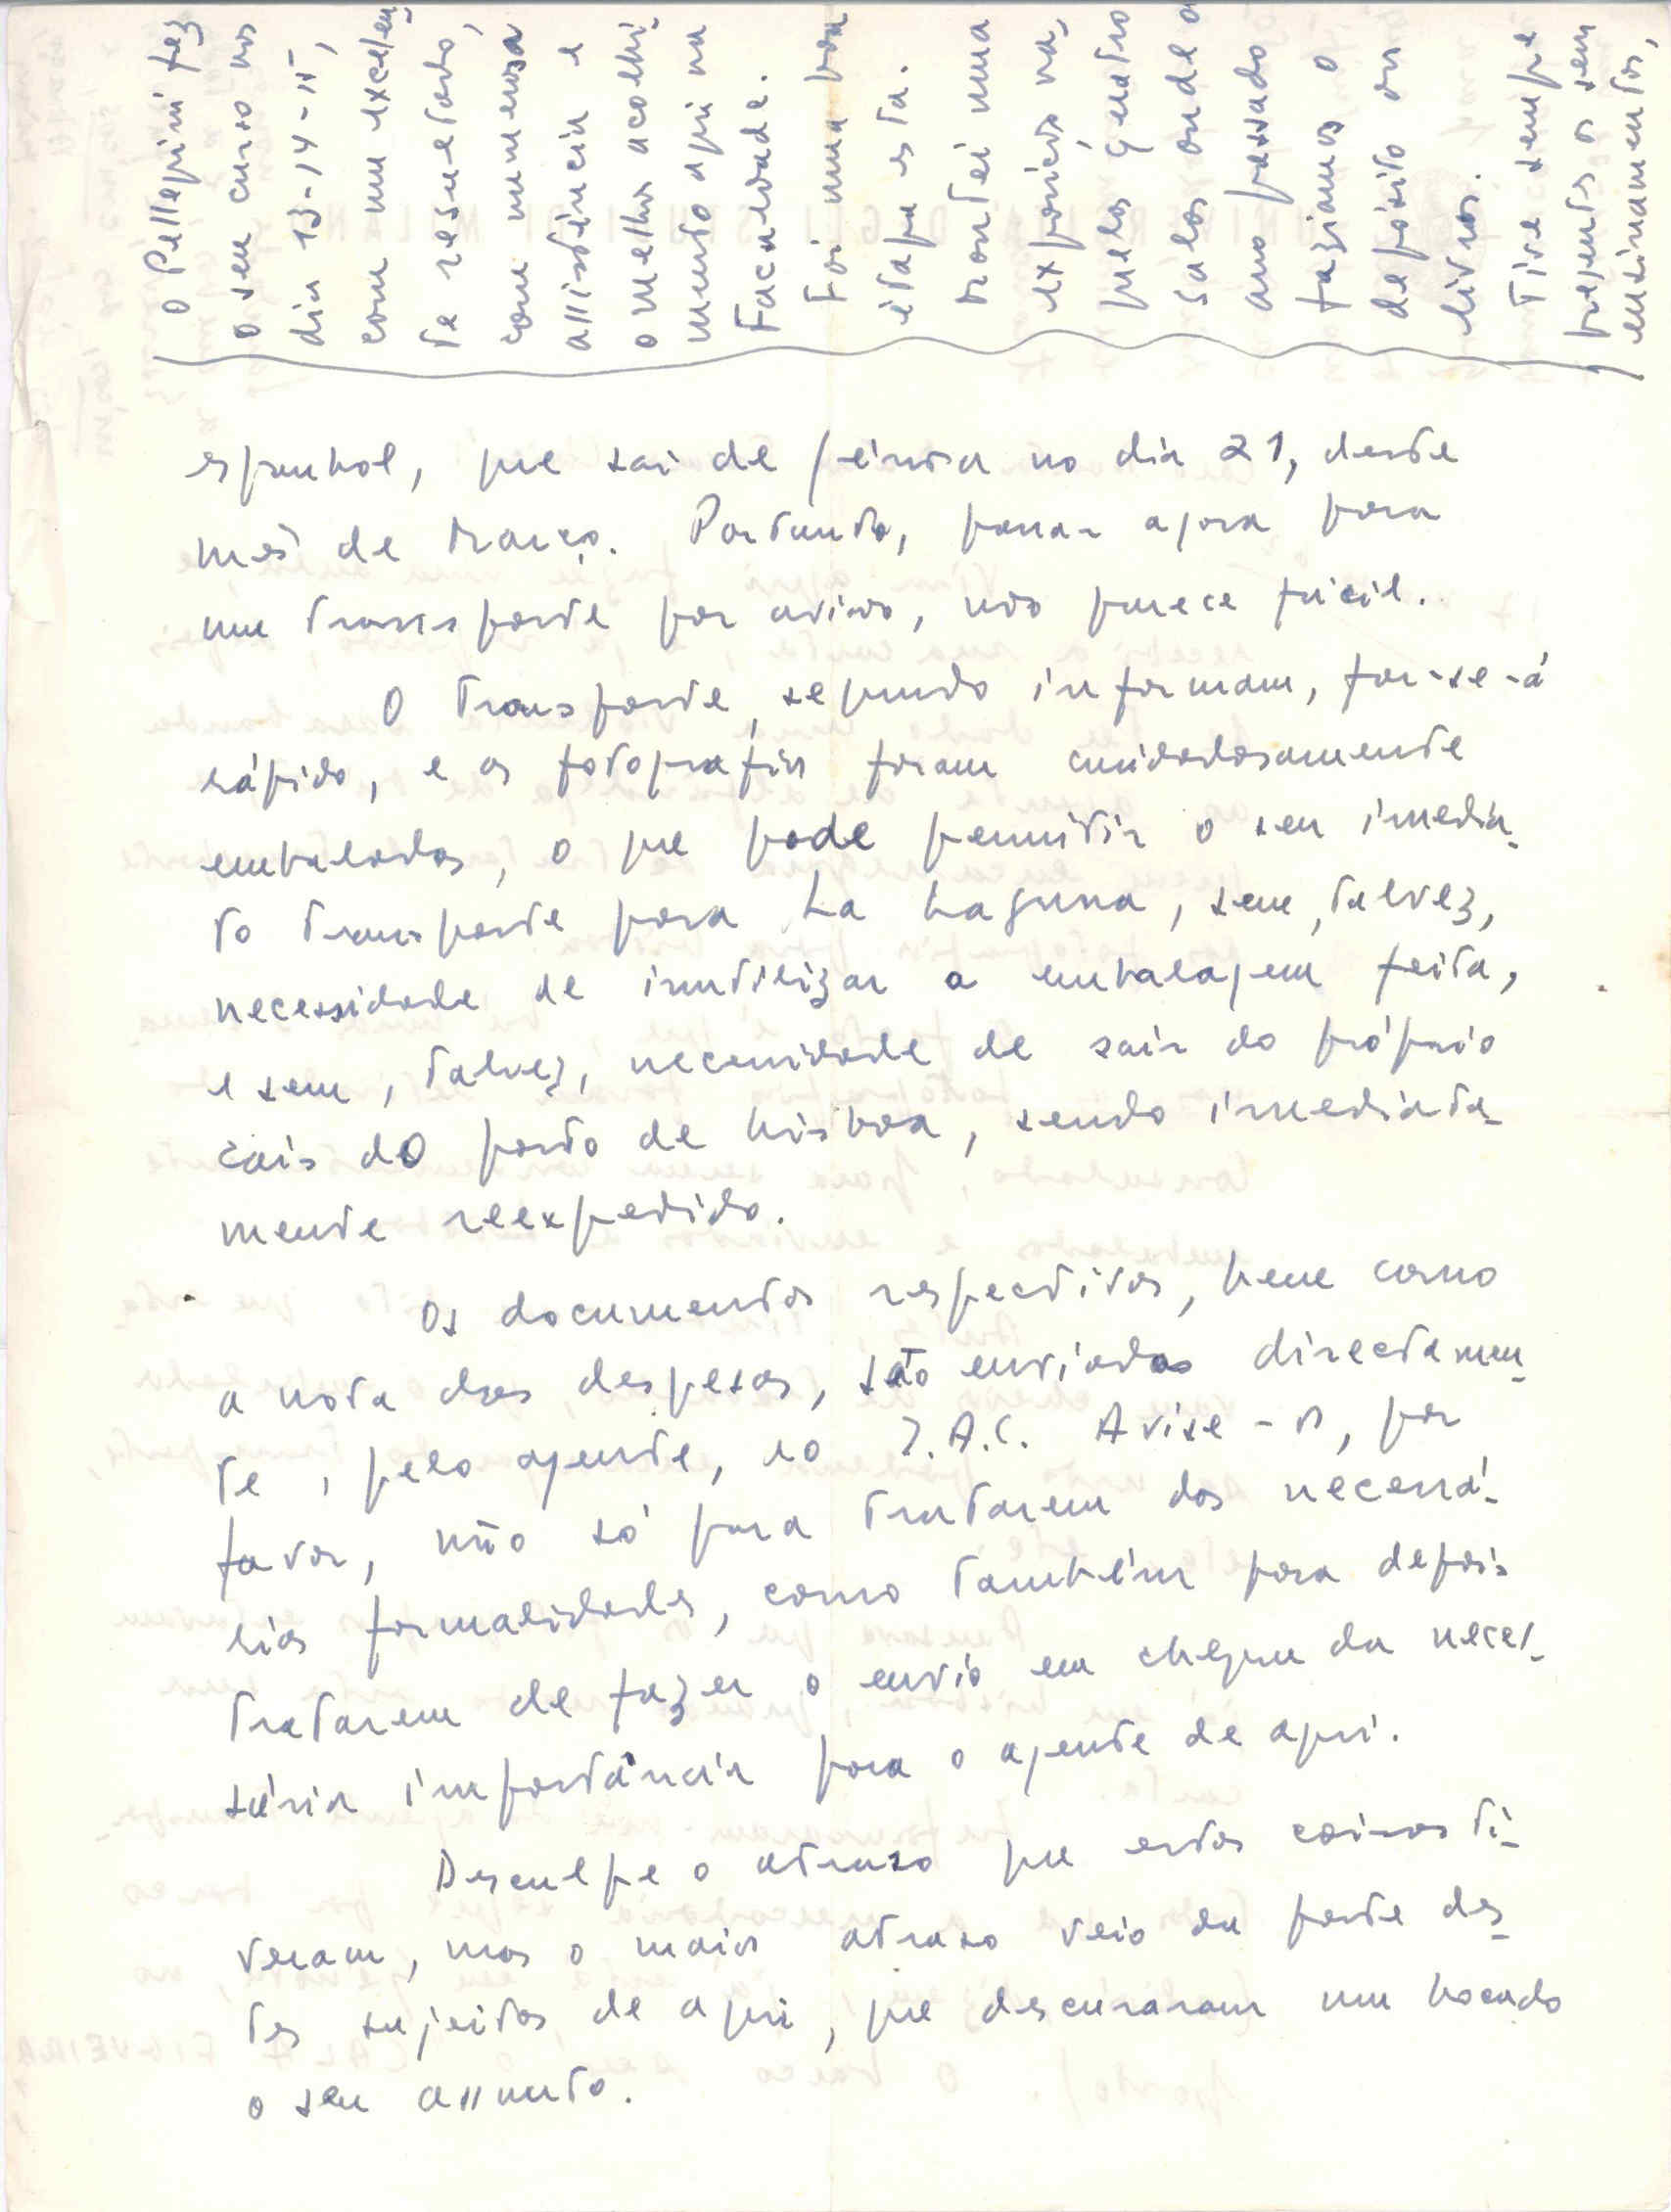 O Pellegrini fez
o seu curso nos
dia 13-14-15,
com um excelen-
te resultado,
com numerosa
assistência e
o melhor acolhi-
mento aqui na
Faculdade.
Foi uma boa
etapa esta.
Montei uma
exposição na-
quelas quatro
salas onde o
ano passado
faziamos o
depósito dos
livros.
Tive sempre
presentes os seus
ensinamentos,
espanhol, que sai de Génova no dia 21, deste
mês de Março. Portanto, passar agora para
um transporte por avião, não parece fácil.
O transporte, segundo informam, far-se-á
rápido, e as fotografias foram cuidadosamente
embaladas, o que pode permitir o seu imedia-
to transporte para La Laguna, sem, talvez,
necessidade de inutilizar a embalagem feita,
e sem, talvez, necessidade de sair do próprio
cais do porto de Lisboa, sendo imediata-
mente reexpedido.
Os documentos respectivos, bem como
a nota das despesas, são enviados directamen-
te, pelo agente, ao I.A.C. Avise-os, por
favor, não só para tratarem das necessá-
rias formalidades, como também para depois
tratarem de fazer o envio em cheque da neces-
sária importância para o agente de aqui.
Desculpe o atraso que estas coisas ti-
veram, mas o maior atraso veio da parte des-
tes sujeitos de aqui, que descuraram um bocado
o seu assunto.